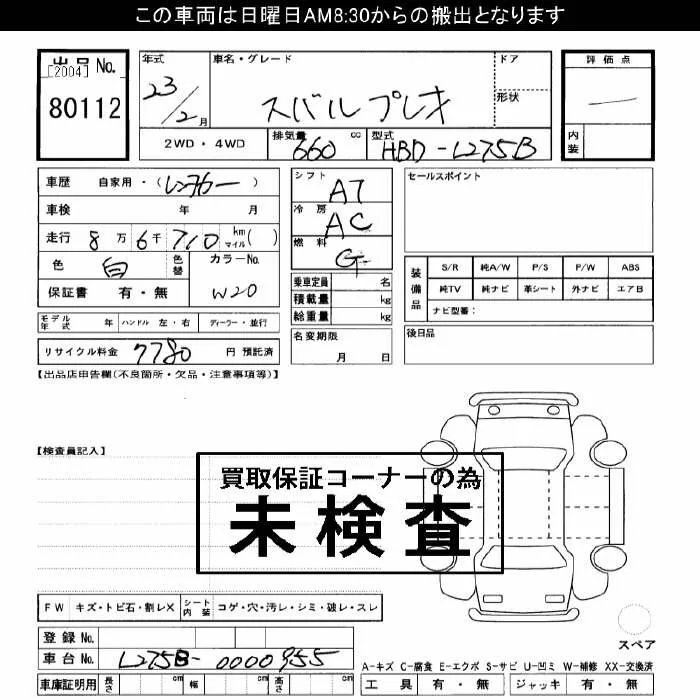 この車両は日曜日AM8:30からの搬出となります
出品 No. [2004]
80112
年式 23/2月
車名・グレード スバルプレオ
ドア
形状
評価点 —
内装
2WD・4WD
排気量 660 cc
型式 HBD-L275B
車歴 自家用・(レンタカー)
車検 年 月
走行 8万6千710 km マイル( )
色 白 色替
カラーNo. W20
保証書 有・無
シフト AT
冷房 AC
燃料 G
乗車定員 名
積載量 kg
総重量 kg
セールスポイント
装備品 S/R 純A/W P/S P/W ABS
純TV 純ナビ 革シート 外ナビ エアB
ナビ型番:
モデル年式 年 ハンドル 左・右 ディーラー・並行
名変期限 月 日
後日品
リサイクル料金 7780 円 預託済
【出品店申告欄(不良箇所・欠品・注意事項等)】
【検査員記入】
買取保証コーナーの為
未検査
FW キズ・トビ石・割レX
シート内装 コゲ・穴・汚レ・シミ・破レ・スレ
スペア
登録 No.
車台 No. L275B-0000955
A-キズ C-腐食 E-エクボ S-サビ U-凹ミ W-補修 XX-交換済
車庫証明用 長さ cm 幅 cm 高さ cm
工具 有・無 ジャッキ 有・無